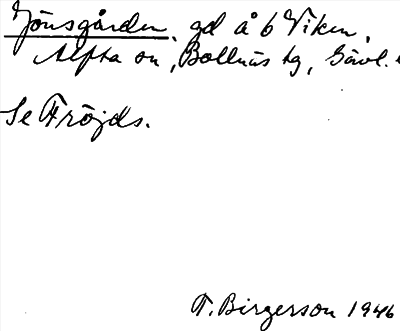 Jönsgården, gd å 6 Viken,
Alfta sn, Bollnäs tg, Gävl.
Se Fröjds.
T. Birgerson 1946